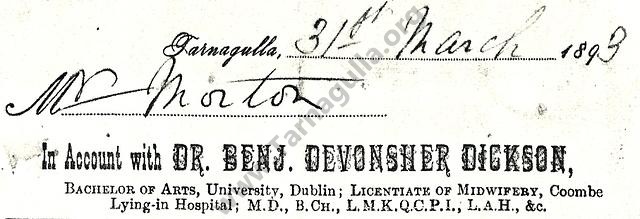 Tarnagulla, 31st March 1893
Mr Morton
In Account with DR. BENJ. DEVONSHER DICKSON,
BACHELOR OF ARTS, University, Dublin; LICENTIATE OF MIDWIFERY, Coombe
Lying-in Hospital; M.D., B.CH., L.M.K.Q.C.P.I., L.A.H., &c.
www.Tarnagulla.org